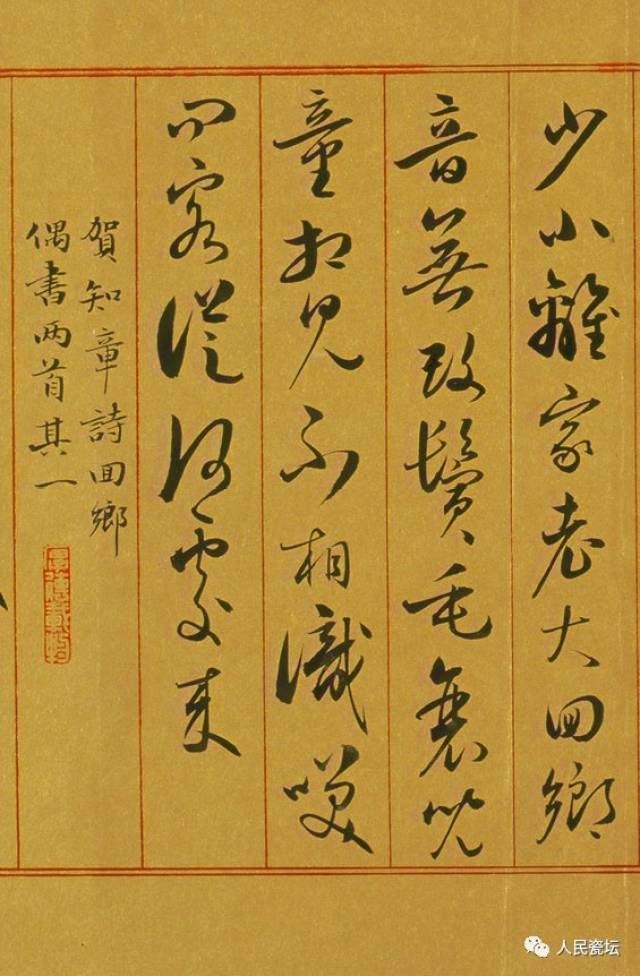 少小離家老大回鄉
音無改鬢毛衰兒
童相見不相識咲
問客從何處來
賀知章詩回鄉
偶書两首其一
人民瓷坛